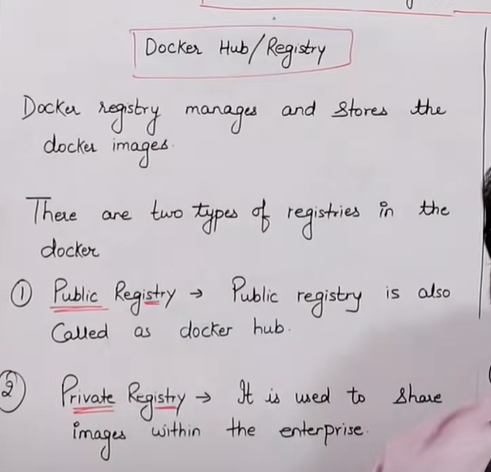 Docker Hub/Registry
Docker registry manages and stores the
docker images.
There are two types of registries in the
docker
① Public Registry → Public registry is also
Called as docker hub.
② Private Registry → It is used to share
images within the enterprise.